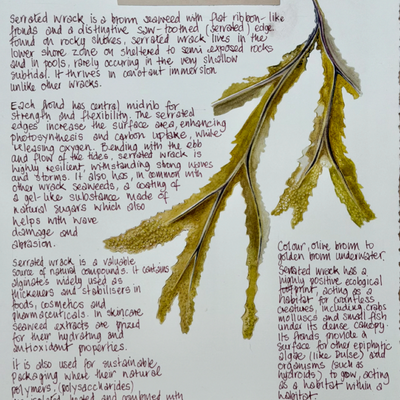 Serrated wrack is a brown seaweed with flat ribbon-like
fronds and a distinctive saw-toothed (serrated) edge
found on rocky shores, serrated wrack lives in the
lower shore zone on sheltered to semi exposed rocks
and in pools, rarely occuring in the very shallow
subtidal. It thrives in constant immersion
unlike other wracks.
Each frond has central midrib for
strength and flexibility. The serrated
edges increase the surface area, enhancing
photosynthesis and carbon uptake, while
releasing oxygen. Bending with the ebb
and flow of the tides, serrated wrack is
highly resilient, withstanding strong waves
and storms. It also has, in common with
other wrack seaweeds, a coating of
a gel-like substance made of
natural sugars which also
helps with wave
damage and
abrasion.
Serrated wrack is a valuable
source of natural compounds. It contains
alginates widely used as
thickeners and stabilisers in
foods, cosmetics and
pharmaceuticals. In skincare
seaweed extracts are prized
for their hydrating and
antioxidant properties.
It is also used for sustainable
packaging where their natural
polymers (polysaccharides)
isolated, heated and combined with
Colour, olive brown to
golden brown underwater.
Serrated wrack has a
highly positive ecological
footprint, acting as a
habitat for countless
creatures, including crabs
molluscs and small fish
under its dense canopy.
Its fronds provide a
surface for other epiphytic
algae (like Dulse) and
organisms (such as
hydroids) to grow, acting
as a habitat within a
habitat.